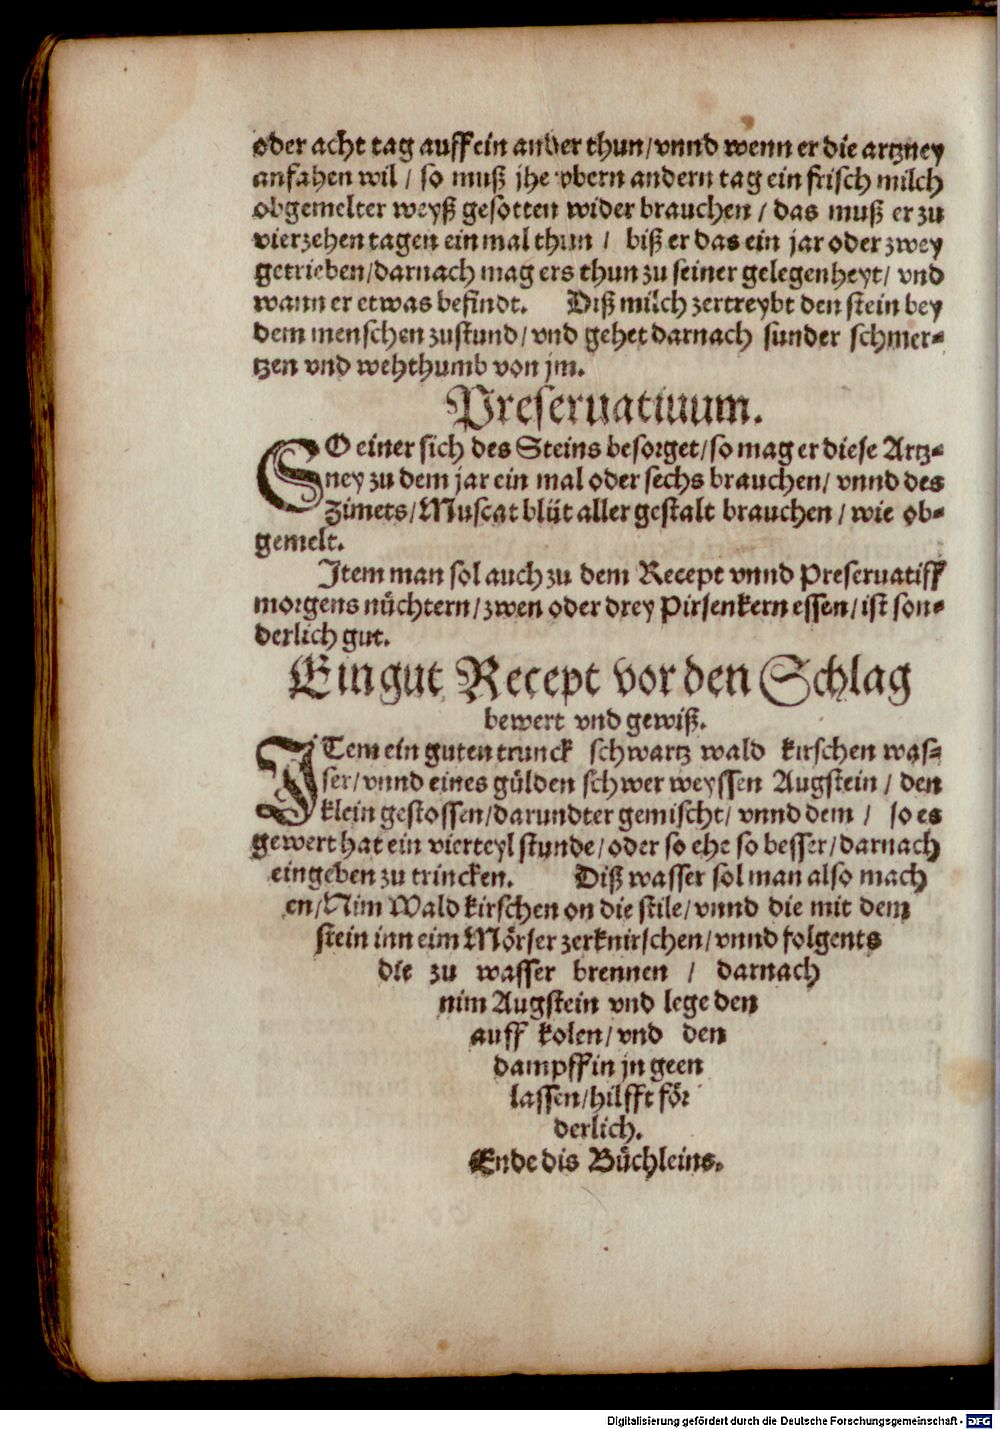 oder acht tag auff ein ander thun/vnnd wenn er die artzney
anfahen wil / so muß jhe vbern andern tag ein frisch milch
obgemelter weyß gesotten wider brauchen / das muß er zu
vierzehen tagen ein mal thun / biß er das ein jar oder zwey
getrieben/darnach mag ers thun zu seiner gelegenheyt/ vnd
wann er etwas befindt. Diß milch zertreybt den stein bey
dem menschen zustund/ vnd gehet darnach sunder schmer-
tzen vnd wehthumb von jm.
Preseruatiuum.
SO einer sich des Steins besorget/so mag er diese Artz-
ney zu dem jar ein mal oder sechs brauchen/ vnnd des
Zimets/Muscat blüt aller gestalt brauchen / wie ob-
gemelt.
Item man sol auch zu dem Recept vnnd Preseruatiff
morgens nüchtern/zwen oder drey Pirsenkern essen/ist son-
derlich gut.
Ein gut Recept vor den Schlag
bewert vnd gewiß.
ITem ein guten trunck schwartz wald kirschen was-
ser/vnnd eines gülden schwer weyssen Augstein / den
klein gestossen/darundter gemischt/ vnnd dem / so es
gewert hat ein vierteyl stunde/oder so ehe so besser/darnach
eingeben zu trincken. Diß wasser sol man also mach
en/Nim Wald kirschen on die stile/vnnd die mit dem
stein inn eim Mörser zerknirschen/vnnd folgents
die zu wasser brennen / darnach
nim Augstein vnd lege den
auff kolen/vnd den
dampff in jn geen
lassen/hilfft för
derlich.
Ende dis Büchleins.
Digitalisierung gefördert durch die Deutsche Forschungsgemeinschaft - DFG